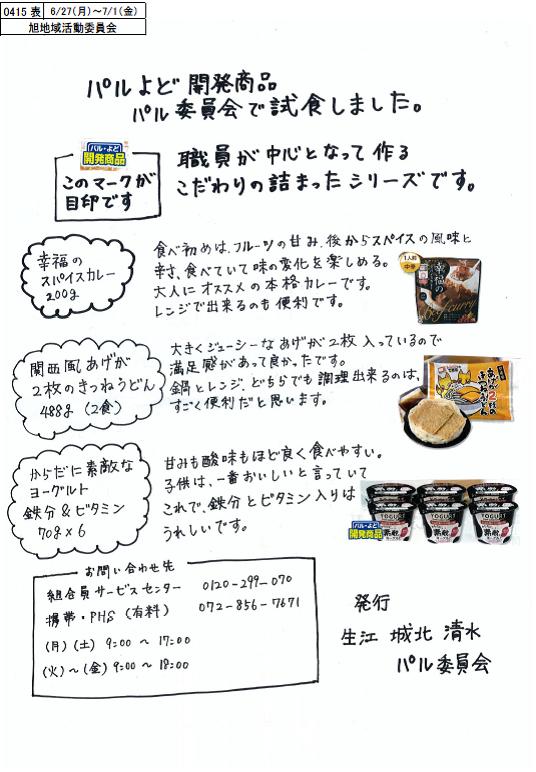 0415 表 6/27(月)~7/1(金)
旭地域活動委員会
パルよど開発商品
パル委員会で試食しました。
パル・よど
開発商品
このマークが
目印です
職員が中心となって作る
こだわりの詰まったシリーズです。
幸福の
スパイスカレー
200g
食べ初めは、フルーツの甘み、後からスパイスの風味と
辛さ、食べていて味の変化を楽しめる。
大人にオススメの本格カレーです。
レンジで出来るのも便利です。
1人前
中辛
幸福の
curry
関西風あげが
2枚のきつねうどん
488g (2食)
大きくジューシーなあげが2枚入っているので
満足感があって良かったです。
鍋とレンジ、どちらでも調理出来るのは、
すごく便利だと思います。
あげが2枚
のきつねうどん
からだに素敵な
ヨーグルト
鉄分&ビタミン
70g×6
甘みも酸味もほど良く食べやすい。
子供は、一番おいしいと言っていて
これで、鉄分とビタミン入りは
うれしいです。
YOGURT
YOGURT
YOGURT
素敵
素敵
素敵
パル・よど
開発商品
お問い合わせ先
組合員サービスセンター 0120-299-070
携帯・PHS (有料) 072-856-7671
(月)(土) 9:00 ~ 17:00
(火)~(金) 9:00 ~ 18:00
発行
生江 城北 清水
パル委員会